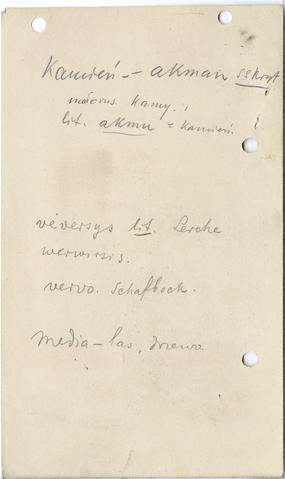 Kamień – akman SSKryt
małorus. kamy.,
lit. akmu = kamień.
vėversys lit. Lerche
werwirsis.
vervo. Schafbock.
Media – las, drzewo